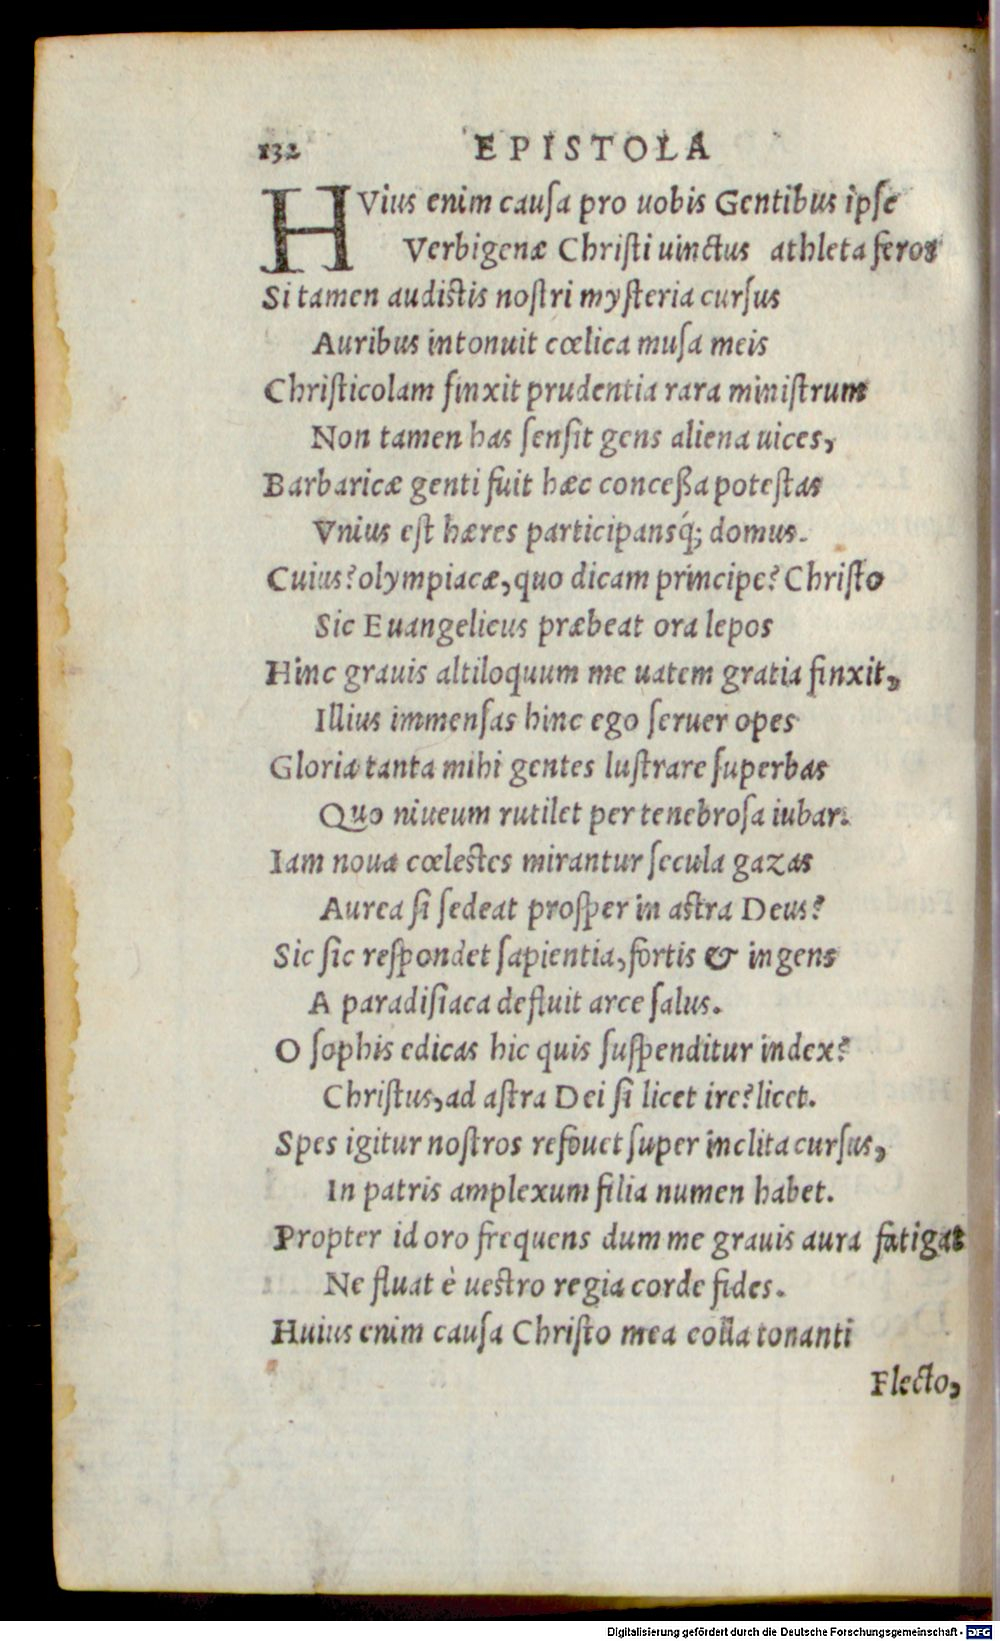 132 EPISTOLA
HVius enim causa pro uobis Gentibus ipse
Verbigenæ Christi uinctus athleta feror
Si tamen audistis nostri mysteria cursus
Auribus intonuit cœlica musa meis
Christicolam finxit prudentia rara ministrum
Non tamen has sensit gens aliena uices,
Barbaricæ genti fuit hæc conceßa potestas
Vnius est hæres participansq́; domus.
Cuius? olympiacæ, quo dicam principe? Christo
Sic Euangelicus præbeat ora lepos
Hinc grauis altiloquum me uatem gratia finxit,
Illius immensas hinc ego seruer opes
Gloria tanta mihi gentes lustrare superbas
Quo niueum rutilet per tenebrosa iubar.
Iam noua cœlestes mirantur secula gazas
Aurea si sedeat prosper in astra Deus?
Sic sic respondet sapientia, fortis & ingens
A paradisiaca defluit arce salus.
O sophis edicas hic quis suspenditur index?
Christus, ad astra Dei si licet ire? licet.
Spes igitur nostros refouet super inclita cursus,
In patris amplexum filia numen habet.
Propter id oro frequens dum me grauis aura fatigat
Ne fluat è uestro regia corde fides.
Huius enim causa Christo mea colla tonanti
Flecto,
Digitalisierung gefördert durch die Deutsche Forschungsgemeinschaft - DFG